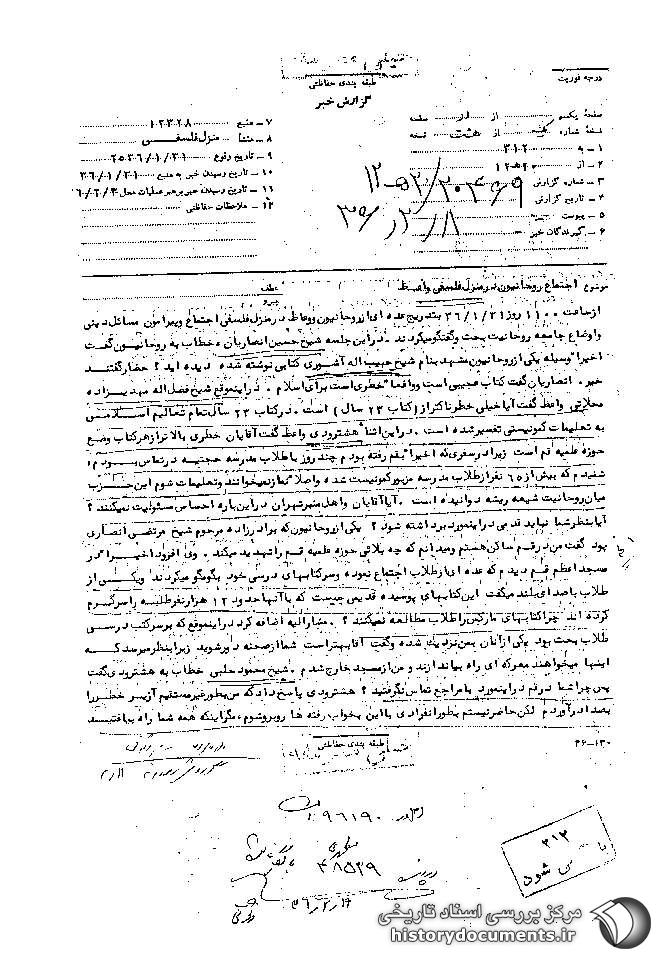 درجه فوریت
طبقه بندی حفاظتی
گزارش خبر
صفحه یکم از صفحه
نسخه شماره از هشت نسخه
۱ـ به ۳۱۲
۲ـ از ۱۲ ه‍ ۲۰
۳ـ شماره گزارش
۴ـ تاریخ گزارش
۵ـ پیوست
۶ـ گیرندگان خبر
۷ـ منبع ۱۲۳۲۸
۸ـ منشأ منزل فلسفی
۹ـ تاریخ وقوع ۲۵۳۶/۱/۲۱
۱۰ـ تاریخ رسیدن خبر به منبع ۳۶/۱/۲۱
۱۱ـ تاریخ رسیدن خبر برهبر عملیات محل
۱۲ـ ملاحظات حفاظتی
موضوع : اجتماع روحانیون در منزل فلسفی واعظ
عطف
پیرو
ازساعت ۱۱۰۰ روز ۳۶/۱/۲۱ بتدریج عده ای ازروحانیون ووعاظ در منزل فلسفی اجتماع وپیرامون مسائل دینی
واوضاع جامعه روحانیت بحث وگفتگومیکردند . دراین جلسه شیخ حسین انصاریان ، خطاب به روحانیون گفت
اخیرا" وسیله یکی ازروحانیون مشهد بنام شیخ حبیب اله آشوری کتابی نوشته شده دیده اید ؟ حضارگفتند
خیر . انصاریان گفت کتاب عجیبی است وواقعا" خطری است برای اسلام . دراینموقع شیخ فضل اله مهدیزاده
محلاتی واعظ گفت آیاخیلی خطرناکتراز (کتاب ۲۳ سال ) است . درکتاب ۲۳ سال تمام تعالیم اسلامی
به تعلیمات کمونیستی تفسیرشده است . دراین اثنا" هشترودی واعظ گفت آقایان خطری بالاترازهرکتاب وضع
حوزه علمیه قم است زیرادرسفری که اخیرا" بقم رفته بودم چند روز باطلاب مدرسه حجتیه درتماس بودم ،
شنیدم که بیش از ۶۵ نفرازطلاب مدرسه مزبورکمونیست شده واصلا" نمازنمیخوانند وتعلیمات شوم این حزب
میان روحانیت شیعه ریشه دوانیده است . آیاآقایان واهل منبرتهران دراین باره احساس مسئولیت نمیکنند ؟
آیابنظرشما نباید قدمی دراینمورد برداشته شود ؟ یکی ازروحانیون که برادرزاده مرحوم شیخ مرتضی انصاری
بود گفت من درقم ساکن هستم ومیدانم که چه بلائی حوزه علمیه قم راتهدید میکند . وی افزود اخیرا" در
مسجد اعظم قم دیدم که عده ای ازطلاب اجتماع نموده وسرکتابهای درسی خود بگومگومیکردند ویکی از
طلاب باصدای بلند میگفت این کتابهای پوسیده قدیمی چیست که باآنهاحدود ۱۲ هزارنفرطلبه راسرگرم
کرده اند چراکتابهای مارکس راطلاب مطالعه نمیکنند ؟ . مشارالیه اضافه کرد دراینموقع که برسرکتب درسی
طلاب بحث بود یکی ازآنان بمن نزدیک شده وگفت آقابهتراست شماازصحنه دورشوید زیرابنظرمیرسد که
اینها میخواهند معرکه ای راه بیاندازند و من ازمسجد خارج شدم . شیخ محمود حلبی خطاب به هشترودی گفت
پس چراشما درقم دراینمورد بامراجع تماس نگرفتید ؟ هشترودی پاسخ داد که من بطورغیرمستقیم آژیر خطررا
بصدادرآوردم لکن حاضرنیستم بطورانفرادی بااین بخواب رفته ها روبروشوم ، مگراینکه همه شما راه بیافتید
۴۶-۱۳۰
طبقه بندی حفاظتی
۹۶۱۹۰
۴۸۵۲۹
۳۱۲
مرکز بررسی اسناد تاریخی
historydocuments.ir